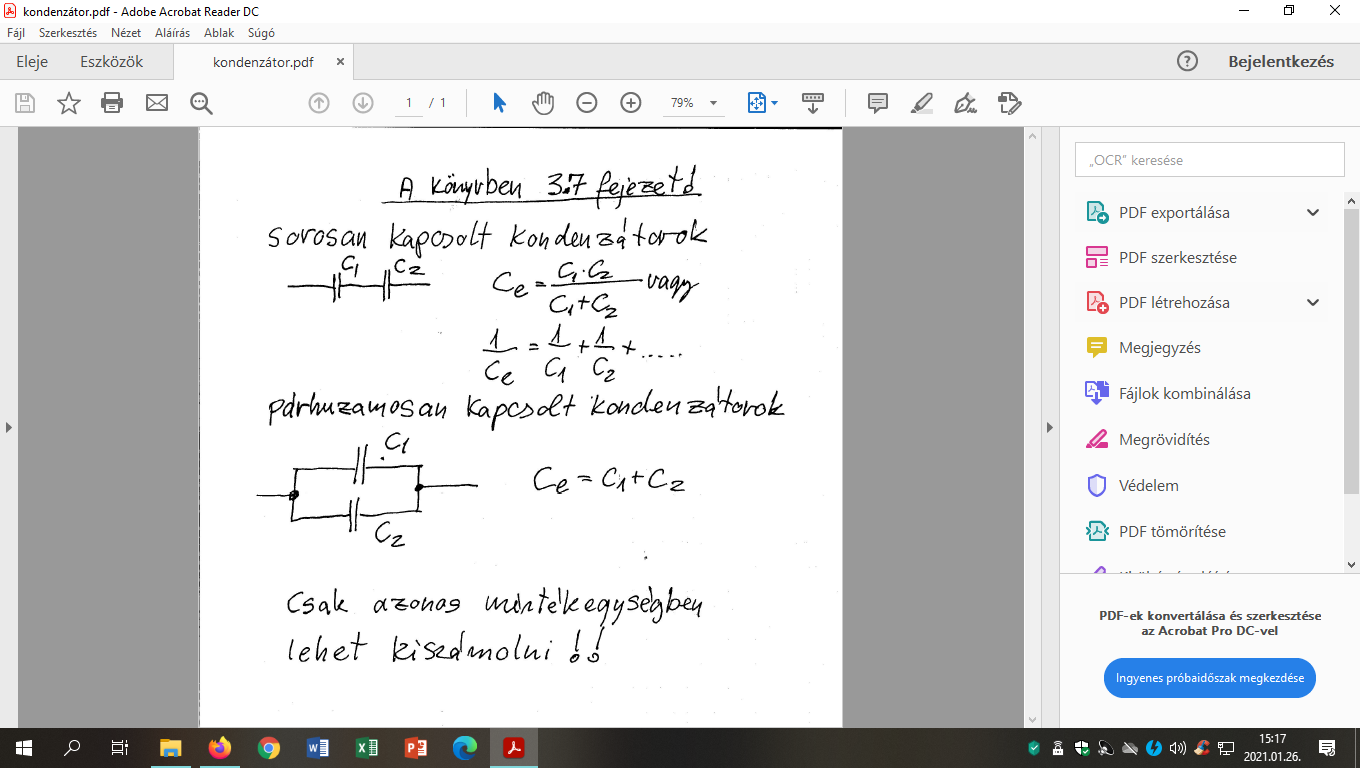 kondenzátor.pdf - Adobe Acrobat Reader DC
Fájl Szerkesztés Nézet Aláírás Ablak Súgó
Eleje Eszközök kondenzátor.pdf × ? Bejelentkezés
1 / 1 79%
A könyvben 3.7 fejezetd
sorosan kapcsolt kondenzátorok
C1 C2
Ce = C1·C2 / C1+C2 vagy
1/Ce = 1/C1 + 1/C2 + .....
párhuzamosan kapcsolt kondenzátorok
C1
Ce = C1+C2
C2
Csak azonos mértékegységben
lehet kiszámolni!!
„OCR” keresése
PDF exportálása
PDF szerkesztése
PDF létrehozása
Megjegyzés
Fájlok kombinálása
Megrövidítés
Védelem
PDF tömörítése
PDF-ek konvertálása és szerkesztése
az Acrobat Pro DC-vel
Ingyenes próbaidőszak megkezdése
15:17
2021.01.26.